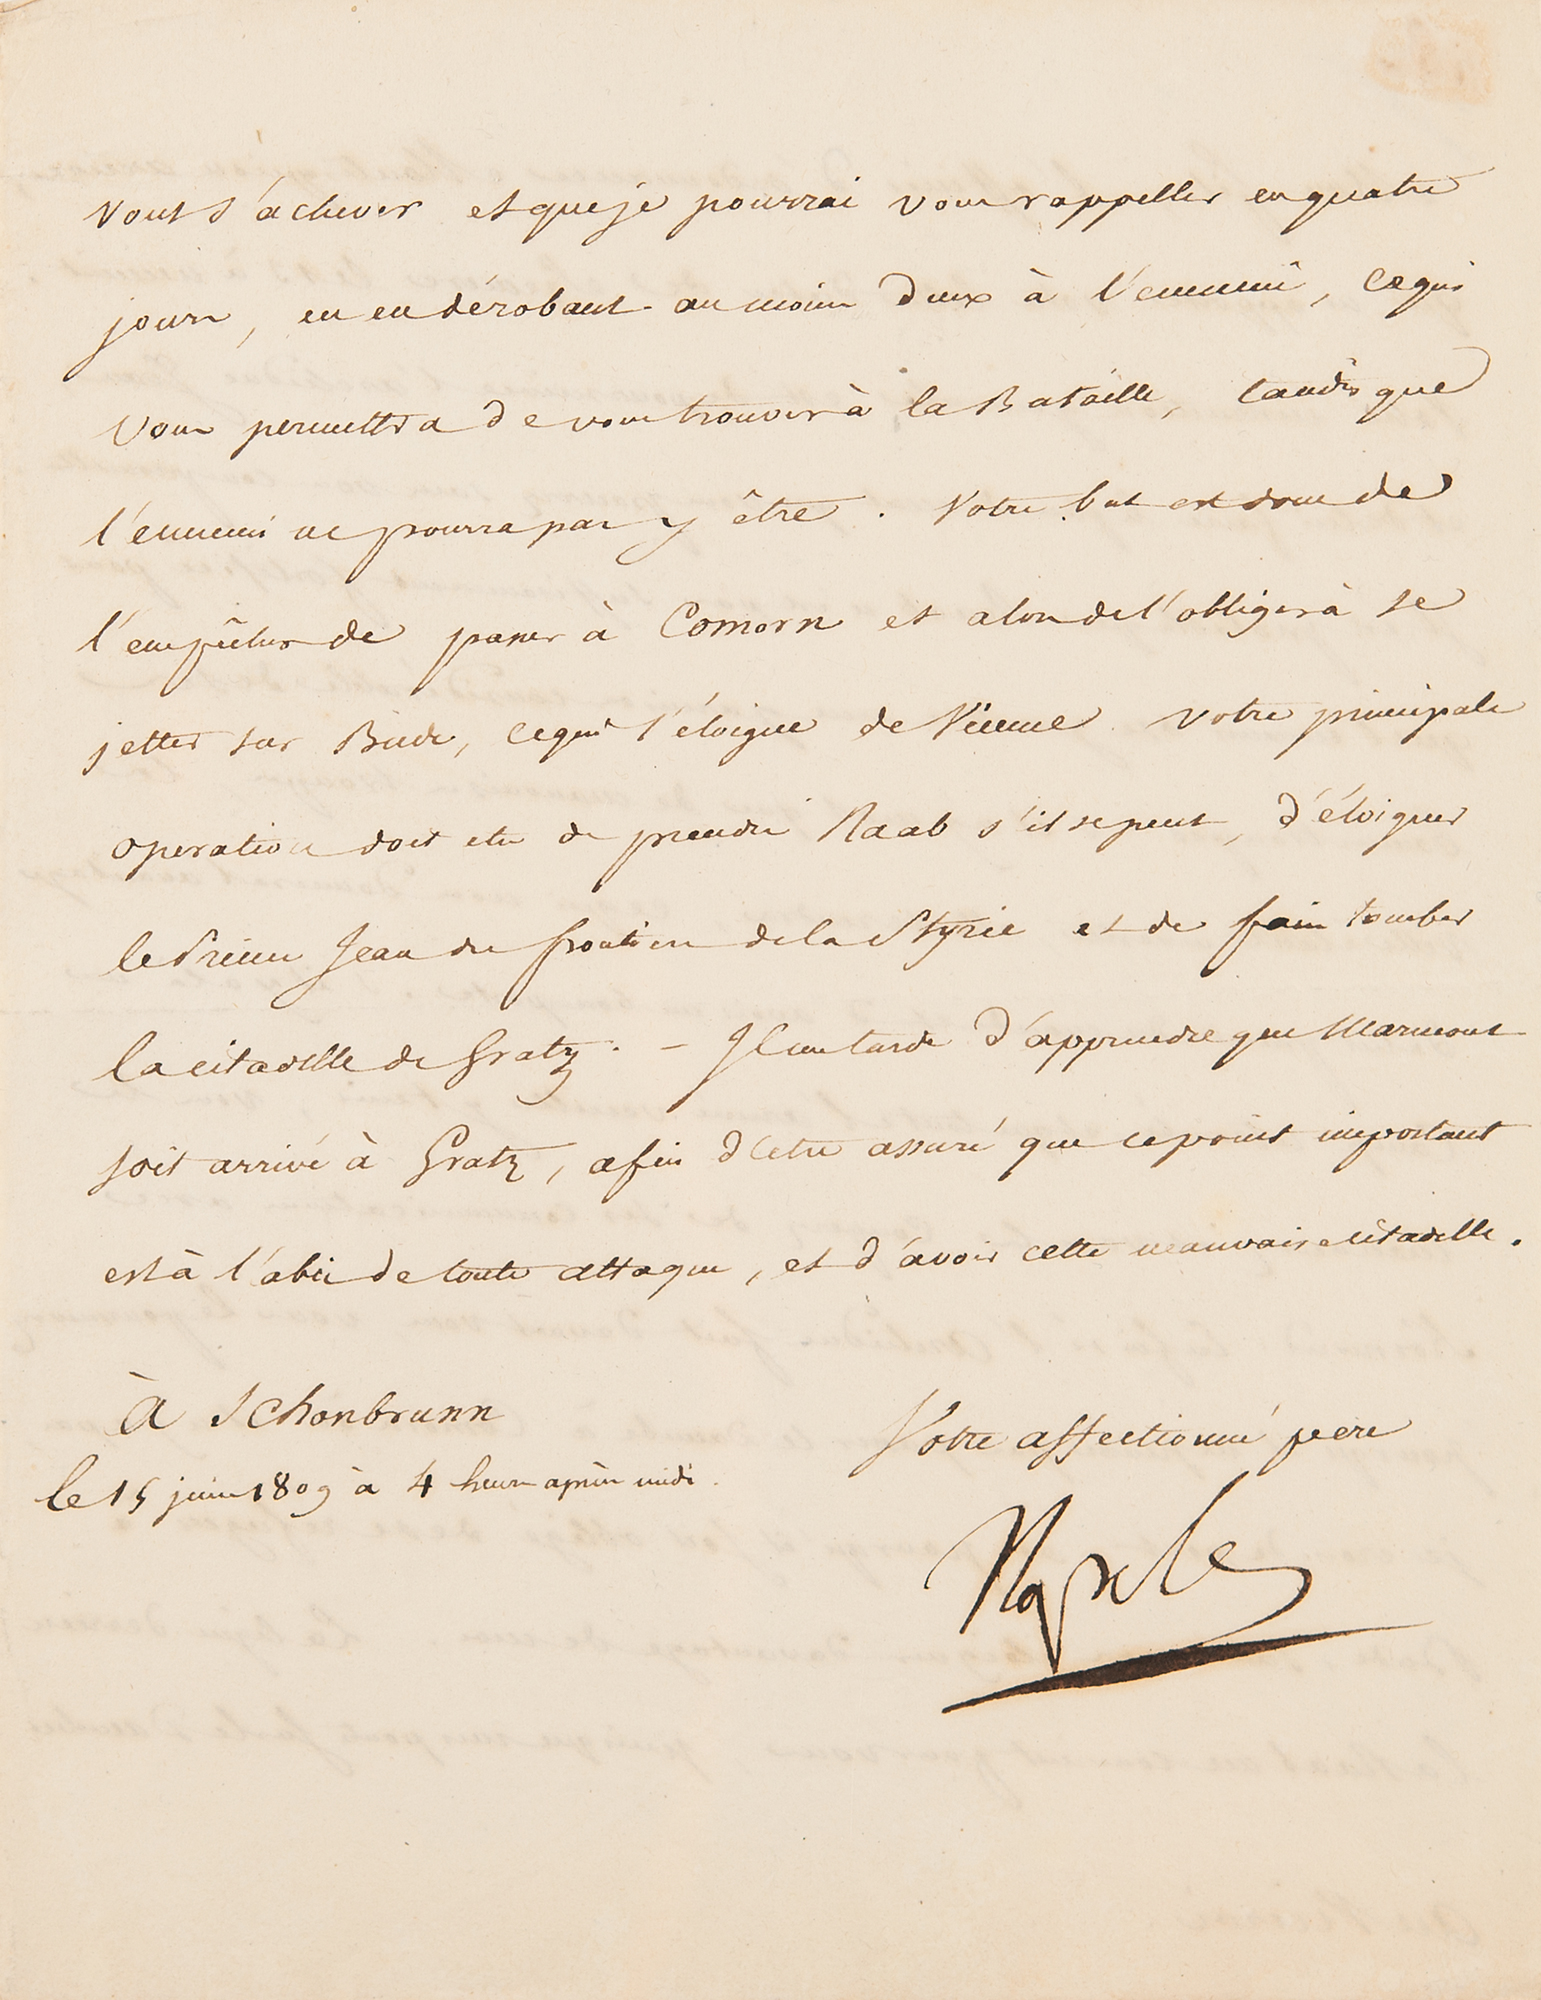 vont s'achever et que je pourrai vous rappeller en quatre
jours, en en dérobant au moins deux à l'ennemi, ce qui
vous permettra de vous trouver à la Bataille, tandis que
l'ennemi ne pourra pas y être. Votre but est donc de
l'empêcher de passer à Comorn et alors de l'obliger à se
jetter sur Bude, ce qui l'éloigne de Vienne. Votre principale
operation doit etre de prendre Raab s'il se peut, d'éloigner
le Prince Jean des frontieres de la Styrie et de faire tomber
la citadelle de Gratz. – Il me tarde d'apprendre que Marmont
soit arrivé à Gratz, afin d'etre assuré que ce point important
est à l'abri de toute attaque, et d'avoir cette mauvaise citadelle.
à Schonbrunn
le 15 juin 1809 à 4 heures après midi.
Votre affectionné pere
Napole